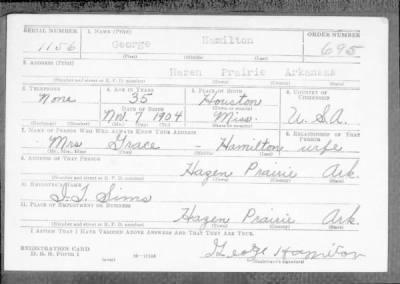 SERIAL NUMBER 1. NAME (Print) ORDER NUMBER
1156 George Hamilton 695
(First) (Middle) (Last)
2. ADDRESS (Print)
Hazen Prairie Arkansas
(Number and street or R. F. D. number) (Town) (County) (State)
3. TELEPHONE 4. AGE IN YEARS 5. PLACE OF BIRTH 6. COUNTRY OF CITIZENSHIP
None 35 Houston
DATE OF BIRTH
Nov. 7 1904 Miss. U.S.A.
(Exchange) (Number) (Mo.) (Day) (Yr.) (State or country)
7. NAME OF PERSON WHO WILL ALWAYS KNOW YOUR ADDRESS 8. RELATIONSHIP OF THAT PERSON
Mrs Grace - Hamilton wife
(Mr., Mrs., Miss) (First) (Middle) (Last)
9. ADDRESS OF THAT PERSON
Hazen Prairie Ark.
(Number and street or R. F. D. number) (Town) (County) (State)
10. EMPLOYER'S NAME
Sims
11. PLACE OF EMPLOYMENT OR BUSINESS
Hazen Prairie Ark.
(Number and street or R. F. D. number) (Town) (County) (State)
I AFFIRM THAT I HAVE VERIFIED ABOVE ANSWERS AND THAT THEY ARE TRUE.
REGISTRATION CARD
D. S. S. FORM 1
George Hamilton
(Registrant's signature)